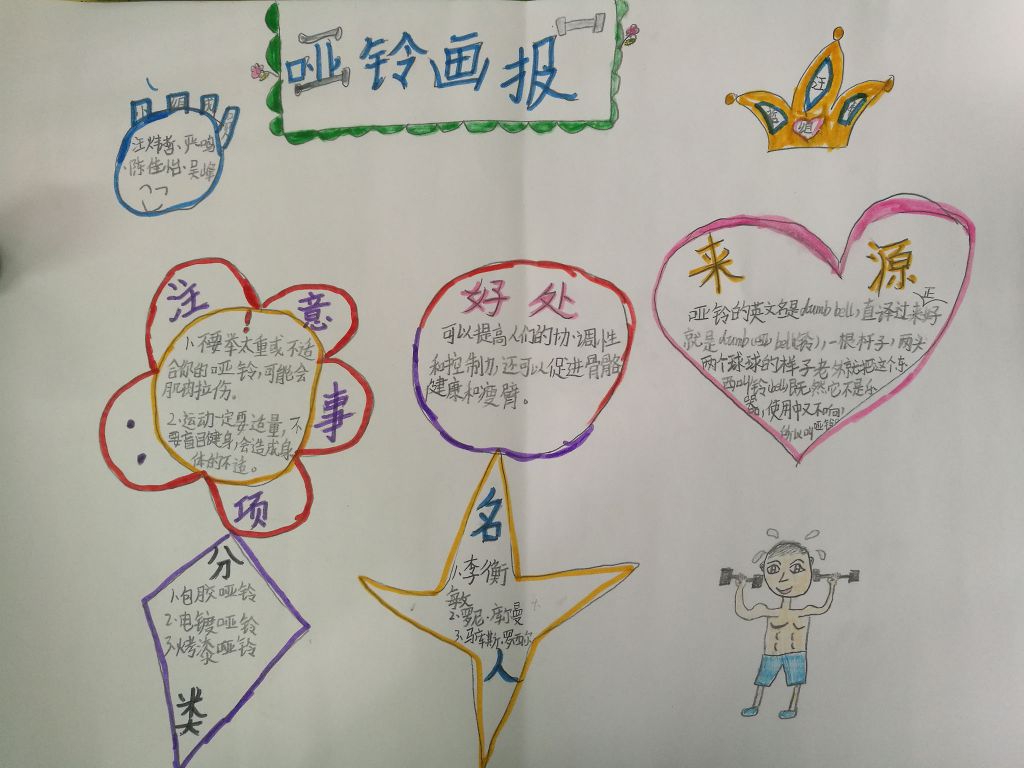 哑铃画报
汪
姐
陈佳怡、吴峰
注意事项:
!
1、不要举太重或不适
合你的哑铃,可能会
肌肉拉伤。
2、运动一定要适量,不
要盲目健身,会造成身
体的不适。
好处
可以提高人们的协调性
和控制力,还可以促进骨骼
健康和瘦臂。
来源
哑铃的英文名是dumb bell,直译过来正好
就是dumb(哑)bell(铃),一根杆子,两头
两个球球的样子
器,使用中又不响,
所以叫哑铃
分类
1、包胶哑铃
2、电镀哑铃
3、烤漆哑铃
名人
1、李衡
2、罗尼·库尔曼
3、马库斯·罗西尔